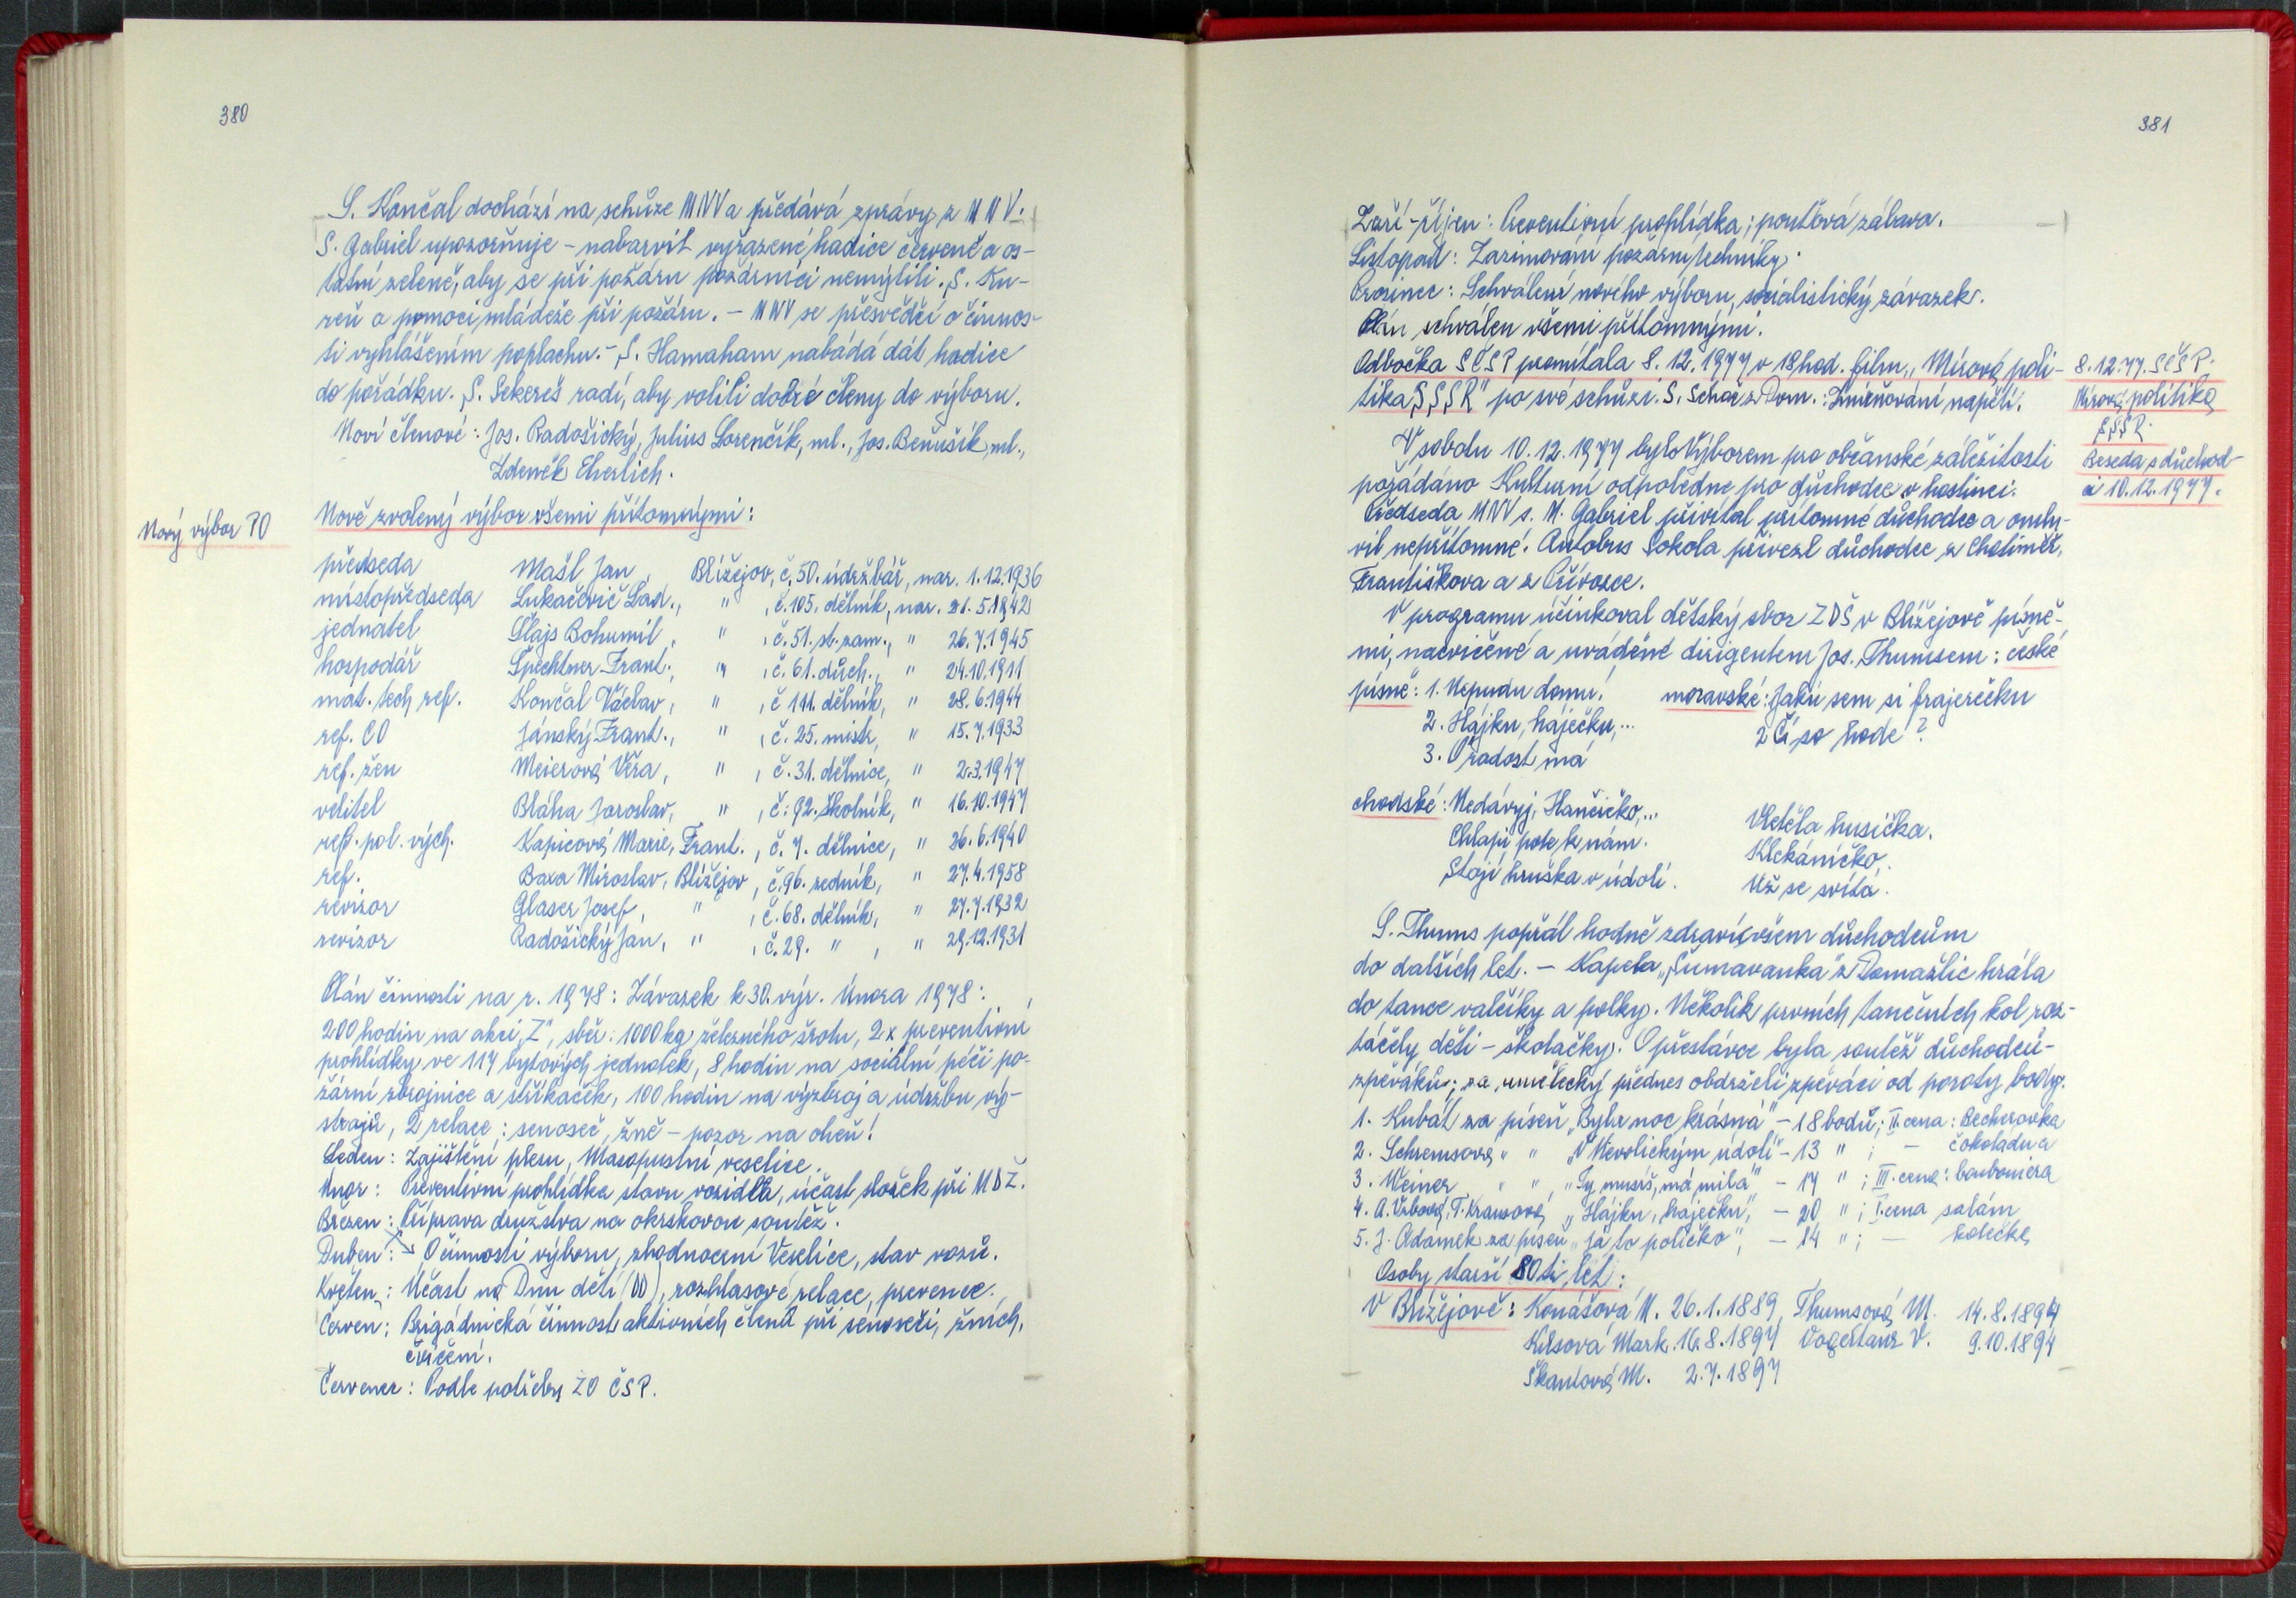 380
S. Končal dochází na schůze MNV a předává zprávy z MNV.
S. Gabriel upozorňuje - nabarvit vyřazené hadice červeně a os-
tatní zeleně, aby se při požáru požárníci nemýlili. S. Ku-
reň o pomoci mládeže při požáru. - MNV se přesvědčí o činnos-
ti vyhlášením poplachu. - S. Hamaham nabádá dát hadice
do pořádku. S. Sekereš radí, aby volili dobré členy do výboru.
Noví členové: Jos. Radošický, Julius Lorenčík, ml., Jos. Beňušík, ml.,
Zdeněk Eherlich.
Nový výbor PO
Nově zvolený výbor všemi přítomnými:
předseda Mašl Jan, Blížejov, č. 50. údržbář, nar. 1.12.1936
místopředseda Lukačevič Lad., " , č. 105. dělník, nar. 21.5.1942
jednatel Šlajs Bohumil, " , č. 51. st. zam., " 26.7.1945
hospodář Špechtner Frant., " , č. 61. důch., " 24.10.1911
mat. tech ref. Končal Václav, " , č 111. dělník, " 28.6.1944
ref. CO Jánský Frant., " , č. 25. mistr, " 15.7.1933
ref. žen Meierová Věra, " , č. 31. dělnice, " 2.3.1947
velitel Bláha Jaroslav, " , č. 92. školník, " 16.10.1947
ref. pol. vých. Kapicová Marie, Frant., č. 7. dělnice, " 26.6.1940
ref. Baxa Miroslav, Blížejov, č. 96. zedník, " 27.4.1958
revizor Glaser Josef, " , č. 68. dělník, " 27.7.1932
revizor Radošický Jan, " , č. 29. " , " 29.12.1931
Plán činnosti na r. 1978: Závazek k 30. výr. Února 1978:
200 hodin na akci „Z", sběr: 1000 kg železného šrotu, 2x preventivní
prohlídky ve 117 bytových jednotek, 8 hodin na sociální péči po-
žární zbrojnice a stříkaček, 100 hodin na výzbroj a údržbu vý-
strojů, 2 relace: senoseč, žně - pozor na oheň!
Leden: Zajištění plesu, Masopustní veselice.
Únor: Preventivní prohlídka stavu vozidla, účast složek při MDŽ.
Březen: Příprava družstva na okrskovou soutěž.
Duben: O činnosti výboru, zhodnocení Veselice, stav vozů.
Květen: Účast na Dnu dětí (DD), rozhlasové relace, prevence.
Červen: Brigádnická činnost aktivních členů při senoseči, žních,
cvičení.
Červenec: Podle potřeby ZO ČSP.
381
Září-říjen: Preventivní prohlídka; pouťová zábava.
Listopad: Zazimování požární techniky.
Prosinec: Schválení nového výboru, socialistický závazek.
Plán schválen všemi přítomnými.
Odbočka SČSP promítala 8.12.1977 v 18 hod. film „Mírová poli-
tika SSSR" po své schůzi. S. Schar z Dom.: Zmírňování napětí.
8.12.77. SČSP.
Mírová politika
SSSR.
V sobotu 10.12.1977 bylo Výborem pro občanské záležitosti
pořádáno Kulturní odpoledne pro důchodce v hostinci.
Beseda s důchod-
ci 10.12.1977.
Předseda MNV s. M. Gabriel přivítal přítomné důchodce a omlu-
vil nepřítomné. Autobus Sokola přivezl důchodce z Chotiměř,
Františkova a z Přívozce.
V programu účinkoval dětský sbor ZDŠ v Blížejově písně-
mi, nacvičené a uváděné dirigentem Jos. Thumsem: české
písně: 1. Nepudu domu! moravské: Jakú sem si frajerečku
2. Hájku, háječku,... 2 Čí so hode?
3. Ó radost má
chodské: Nedávyj, Hančičko,... Vletěla husička.
Chlapi pote k nám. Klekáníčko,
Stojí hruška v údolí. Už se svítá.
S. Thums popřál hodně zdraví všem důchodcům
do dalších let. - Kapela „Šumavanka" z Domažlic hrála
do tance valčíky a polky. Několik prvních tanečních kol roz-
táčely děti - školačky. O přestávce byla soutěž důchodců-
zpěváků; za umělecký přednes obdrželi zpěváci od poroty body.
1. Kubát za píseň „Byla noc krásná" - 18 bodů; II. cena: Becherovka
2. Schremsová " " „V Nevolickým údolí - 13 " ; - čokoláda
3. Weiner " " „Ty musíš, má milá" - 17 " ; III. cena: bonboniera
4. A. Vrbová, T. Krausová, „Hájku, háječku", - 20 " ; I. cena salám
5. J. Adamek za píseň „Já to políčko", - 14 " ; - kolečka
Osoby starší 80ti let:
V Blížejově: Konášová M. 26.1.1889, Thumsová M. 14.8.1894
Kelsová Mark. 16.8.1897 Vogeltanz V. 9.10.1894
Škantová M. 2.7.1897